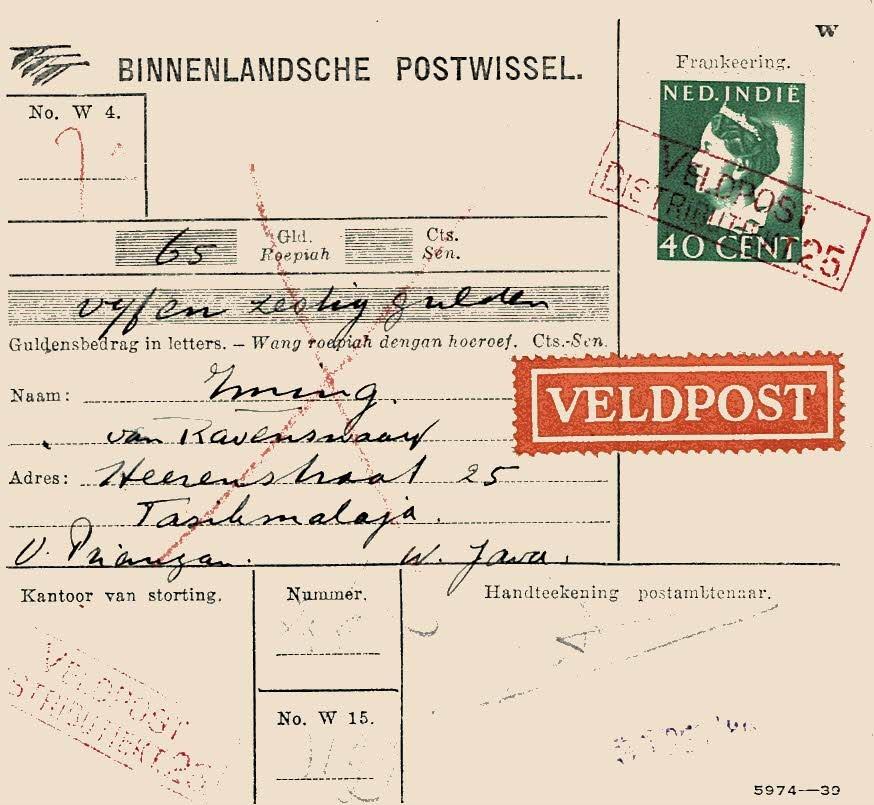 W
BINNENLANDSCHE POSTWISSEL.
Frankeering.
No. W 4.
NED. INDIË
40 CENT
VELDPOST
DISTRIBUTIEKT. 25
65
Gld.
Roepiah
Cts.
Sén.
vyf en zestig gulden
Guldensbedrag in letters. – Wang roepiah dengan hoeroef. Cts.-Sen.
VELDPOST
Naam:
van Ravenswaay
Adres: Heerenstraat 25
Tasikmalaja.
O. Priangan. W. Java.
Kantoor van storting.
Nummer.
Handteekening postambtenaar.
VELDPOST
DISTRIBUTIEKT. 25
No. W 15.
5974—39